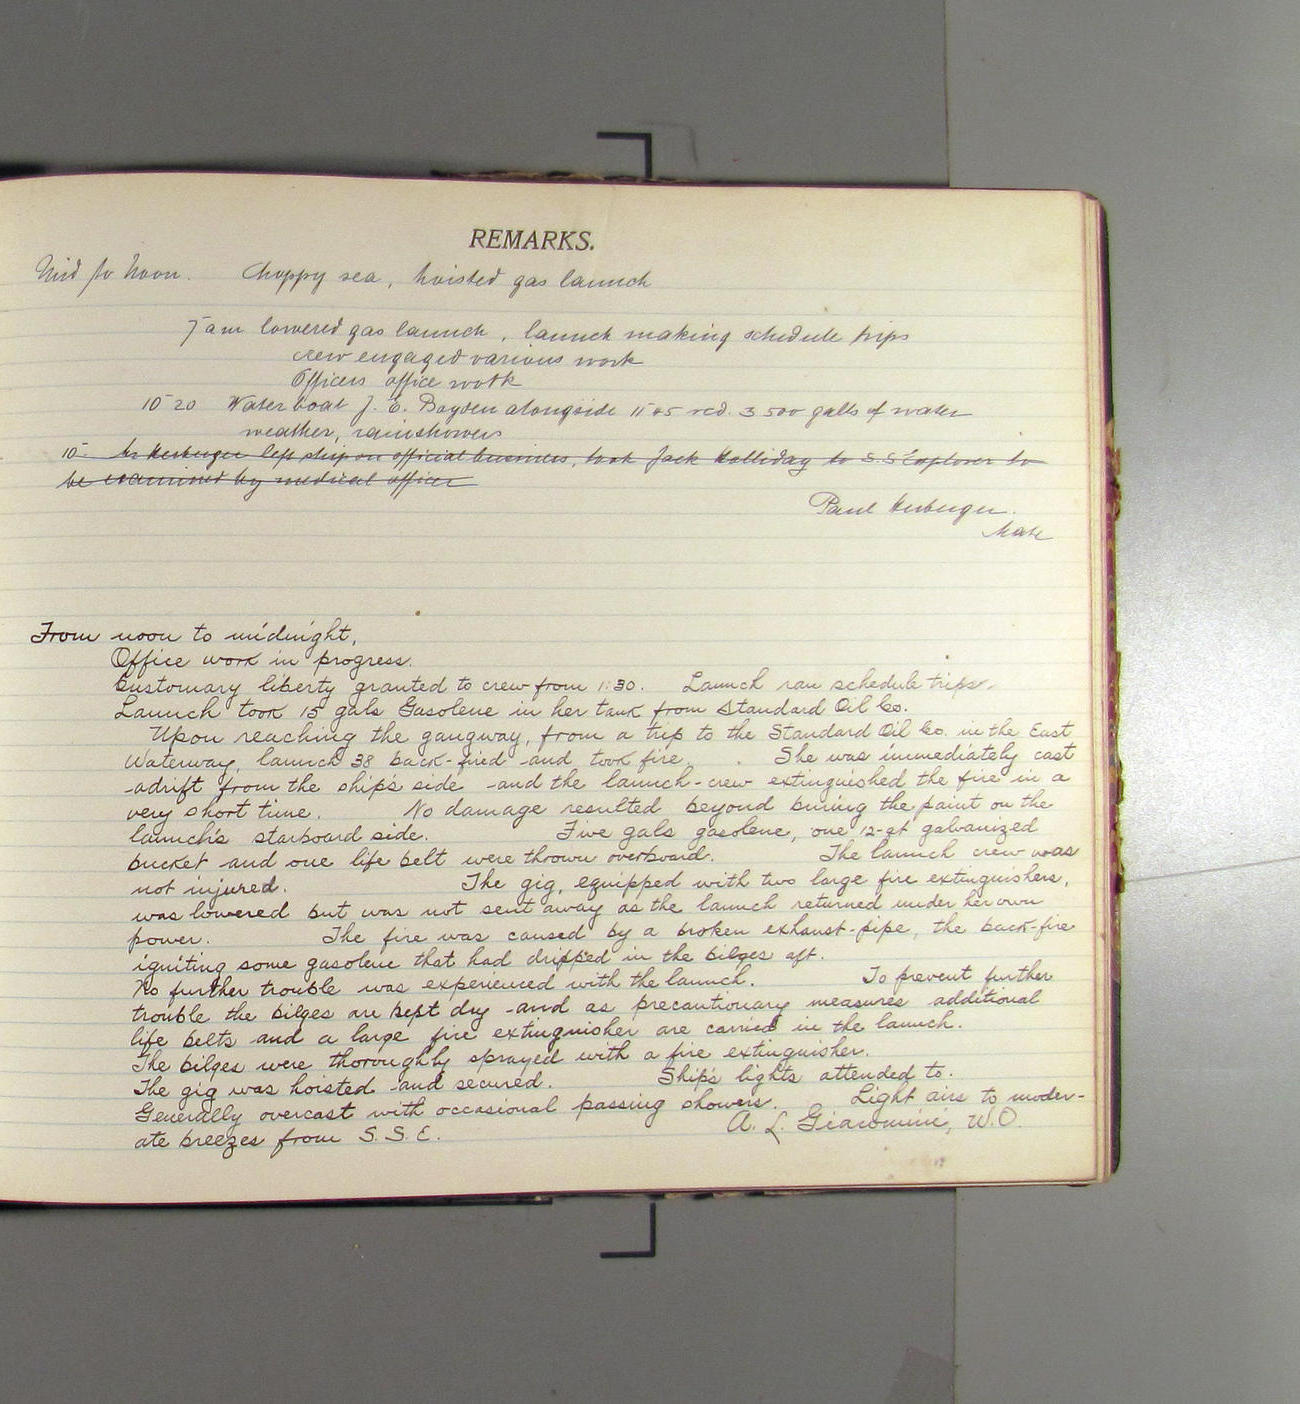 REMARKS.
Mid to Noon. Choppy sea, hoisted gas launch
7 am lowered gas launch, launch making schedule trips
crew engaged various work
Officers office work
10-20 Water boat J. E. Boyden alongside 11-05 rcd. 3500 galls of water
weather, rainshowers
10- Mr Herberger left ship on official business, took Jack Holliday to S.S Explorer to
be examined by medical officer
Paul Herberger.
Mate
From noon to midnight,
Office work in progress.
Customary liberty granted to crew from 1:30. Launch ran schedule trips.
Launch took 15 gals Gasolene in her tank from Standard Oil Co.
Upon reaching the gangway, from a trip to the Standard Oil Co. in the East
Waterway, launch 38 back-fired and took fire. She was immediately cast
adrift from the ship's side and the launch-crew extinguished the fire in a
very short time. No damage resulted beyond buring the paint on the
launch's starboard side. Five gals gasolene, one 12-qt galvanized
bucket and one life belt were thrown overboard. The launch crew was
not injured. The gig, equipped with two large fire extinguishers,
was lowered but was not sent away as the launch returned under her own
power. The fire was caused by a broken exhaust-pipe, the back-fire
igniting some gasolene that had dripped in the bilges aft.
No further trouble was experienced with the launch. To prevent further
trouble the bilges are kept dry and as precautionary measures additional
life belts and a large fire extinguisher are carried in the launch.
The bilges were thoroughly sprayed with a fire extinguisher.
The gig was hoisted and secured. Ship's lights attended to.
Generally overcast with occasional passing showers. Light airs to moder-
ate breezes from S. S. E. A. L. Giacomini, W.O.